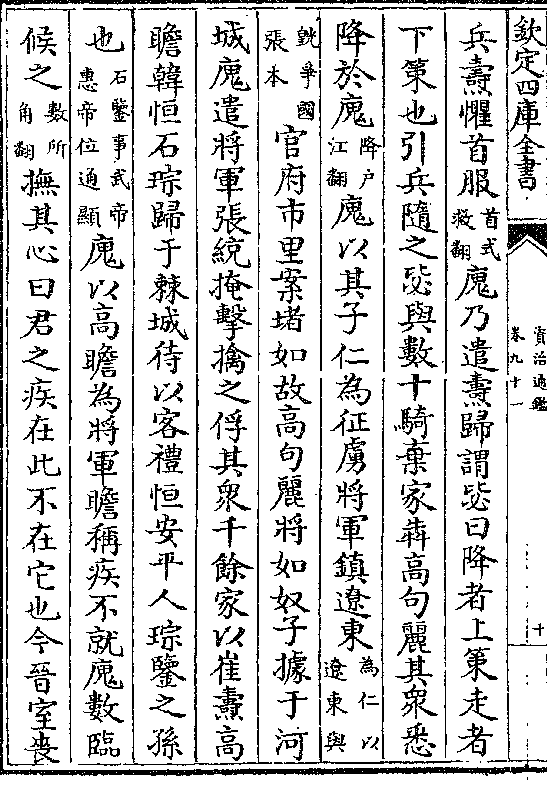 欽定四庫全書
資治通鑑
卷九十一
十
兵燾懼首服首式救翻廆乃遣燾歸謂毖曰降者上策走者
下策也引兵隨之毖與數十騎棄家犇高句麗其衆悉
降於廆降户江翻廆以其子仁為征虜將軍鎮遼東為仁以遼東與
皝爭國張本官府市里案堵如故高句麗將如奴子據于河
城廆遣將軍張統掩擊擒之俘其衆千餘家以崔燾高
瞻韓恒石琮歸于棘城待以客禮恒安平人琮鑒之孫
也石鑒事武帝惠帝位通顯廆以高瞻為將軍瞻稱疾不就廆數臨
候之數所角翻撫其心曰君之疾在此不在它也今晉室喪